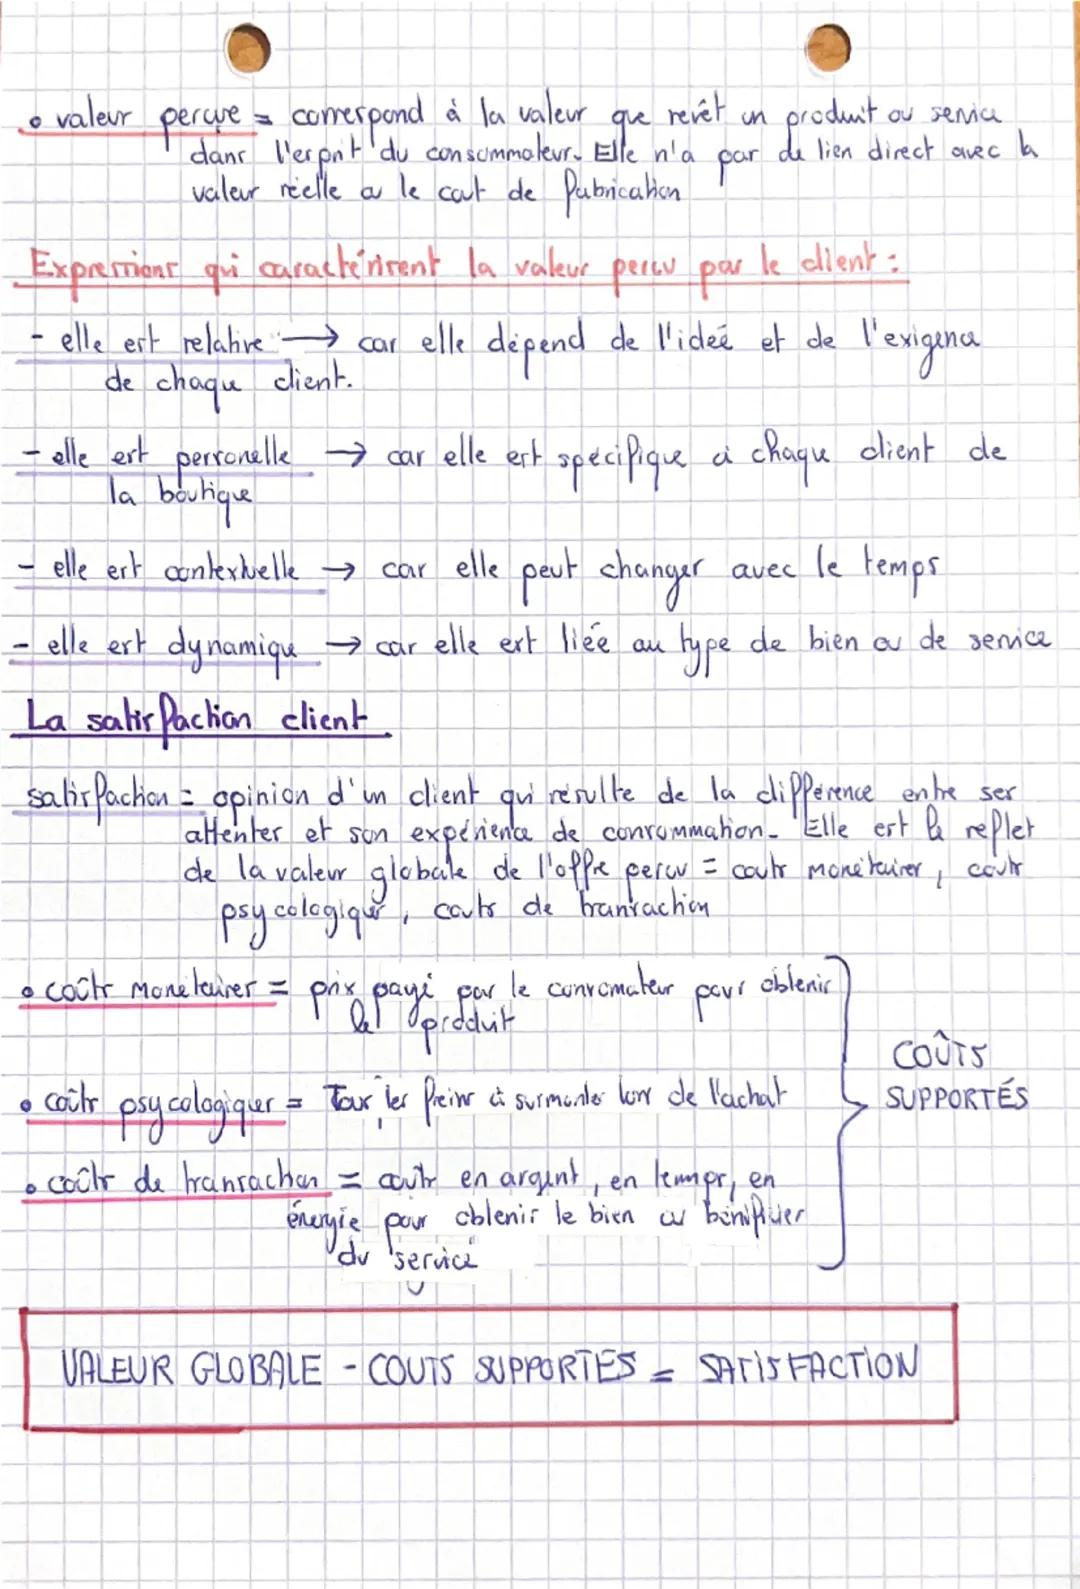 • valeur perçue = correspond à la valeur que revêt un produit ou service
dans l'esprit du consommateur. Elle n'a pas de lien direct avec la
valeur réelle ou le coût de fabrication
Expressions qui caractérisent la valeur perçu par le client :
- elle est relative → car elle dépend de l'ideé et de l'exigence
de chaque client.
- elle est personelle → car elle est spécifique à chaque client de
la boutique
- elle est contextuelle → car elle peut changer avec le temps
- elle est dynamique → car elle est liée au type de bien ou de service
La satisfaction client
satisfaction = opinion d'un client qui résulte de la différence entre ses
attentes et son expérience de consommation. Elle est le reflet
de la valeur globale de l'offre perçu = couts monétaires, couts
psycologiques, couts de transaction
• coûts monetaires = prix payé par le consomateur pour obtenir
le produit
• coûts psycologiques = Tous les freins à surmonter lors de l'achat
• coûts de transaction = couts en argent, en temps, en
énergie pour obtenir le bien ou bénificier
du service
COÛTS
SUPPORTÉS
VALEUR GLOBALE - COUTS SUPPORTES = SATISFACTION